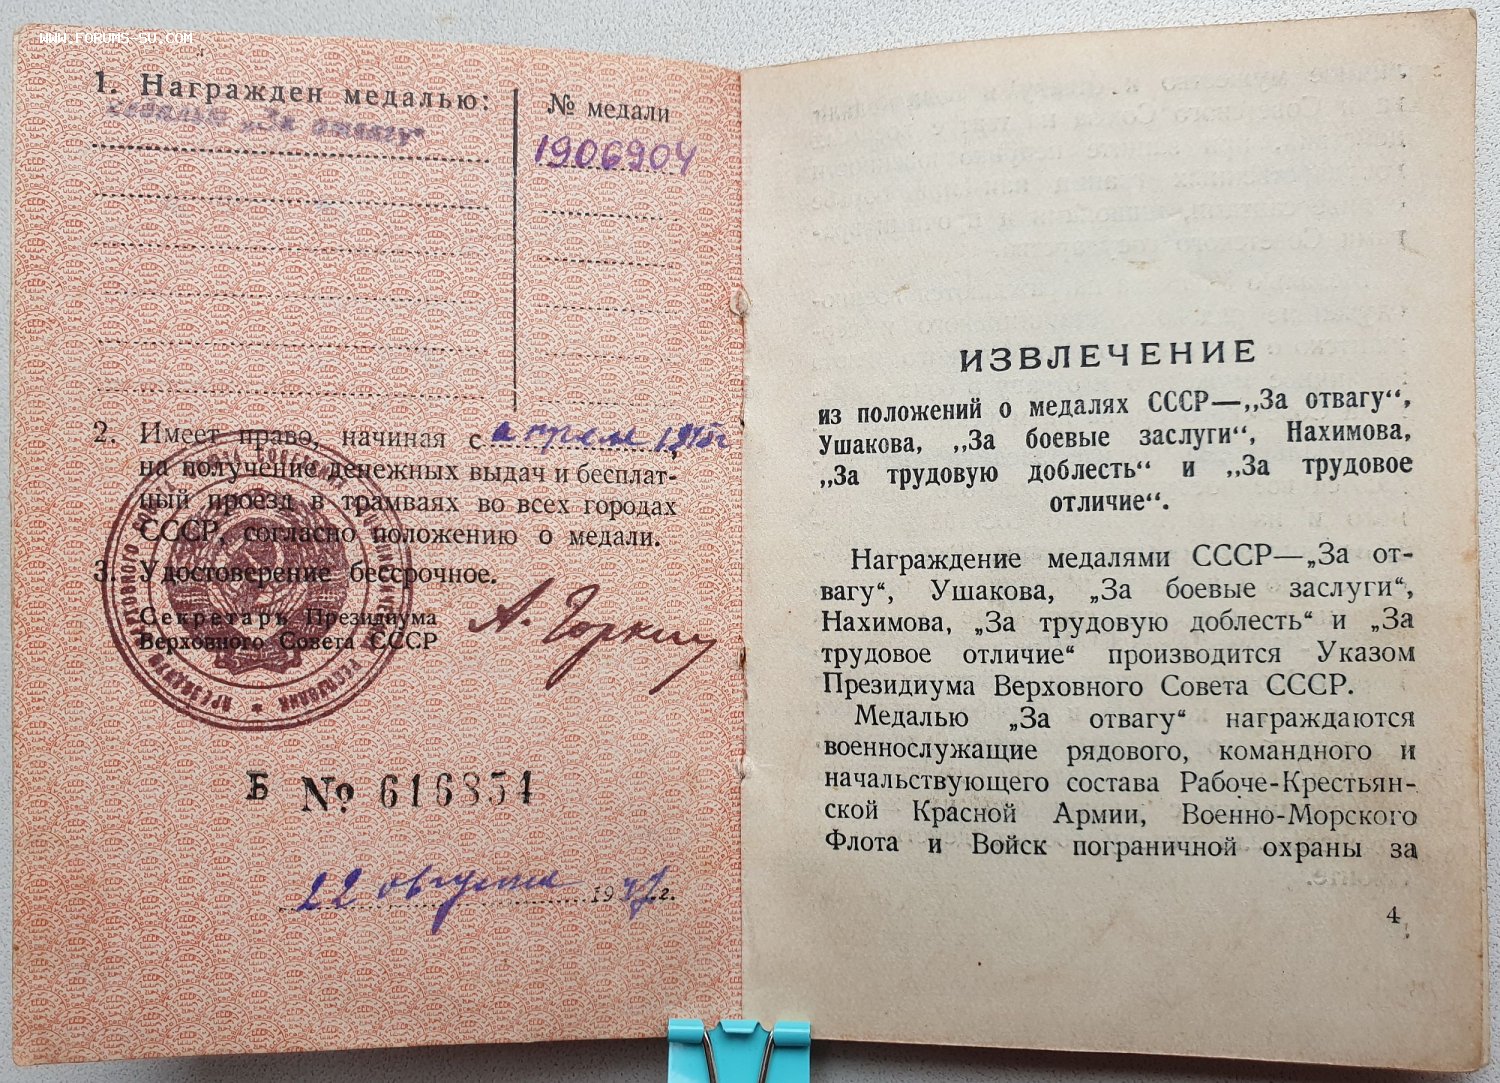 WWW.FORUMS-SU.COM
1. Награжден медалью:
№ медали
медалью „За отвагу“
1906904
2. Имеет право, начиная с апреля 1945г,
на получение денежных выдач и бесплат-
ный проезд в трамваях во всех городах
СССР, согласно положению о медали.
3. Удостоверение бессрочное.
Секретарь Президиума
Верховного Совета СССР
А. Горкин
Б № 616854
22 августа 1947 г.
ИЗВЛЕЧЕНИЕ
из положений о медалях СССР—„За отвагу“,
Ушакова, „За боевые заслуги“, Нахимова,
„За трудовую доблесть“ и „За трудовое
отличие“.
Награждение медалями СССР—„За от-
вагу“, Ушакова, „За боевые заслуги“,
Нахимова, „За трудовую доблесть“ и „За
трудовое отличие“ производится Указом
Президиума Верховного Совета СССР.
Медалью „За отвагу“ награждаются
военнослужащие рядового, командного и
начальствующего состава Рабоче-Крестьян-
ской Красной Армии, Военно-Морского
Флота и Войск пограничной охраны за
4